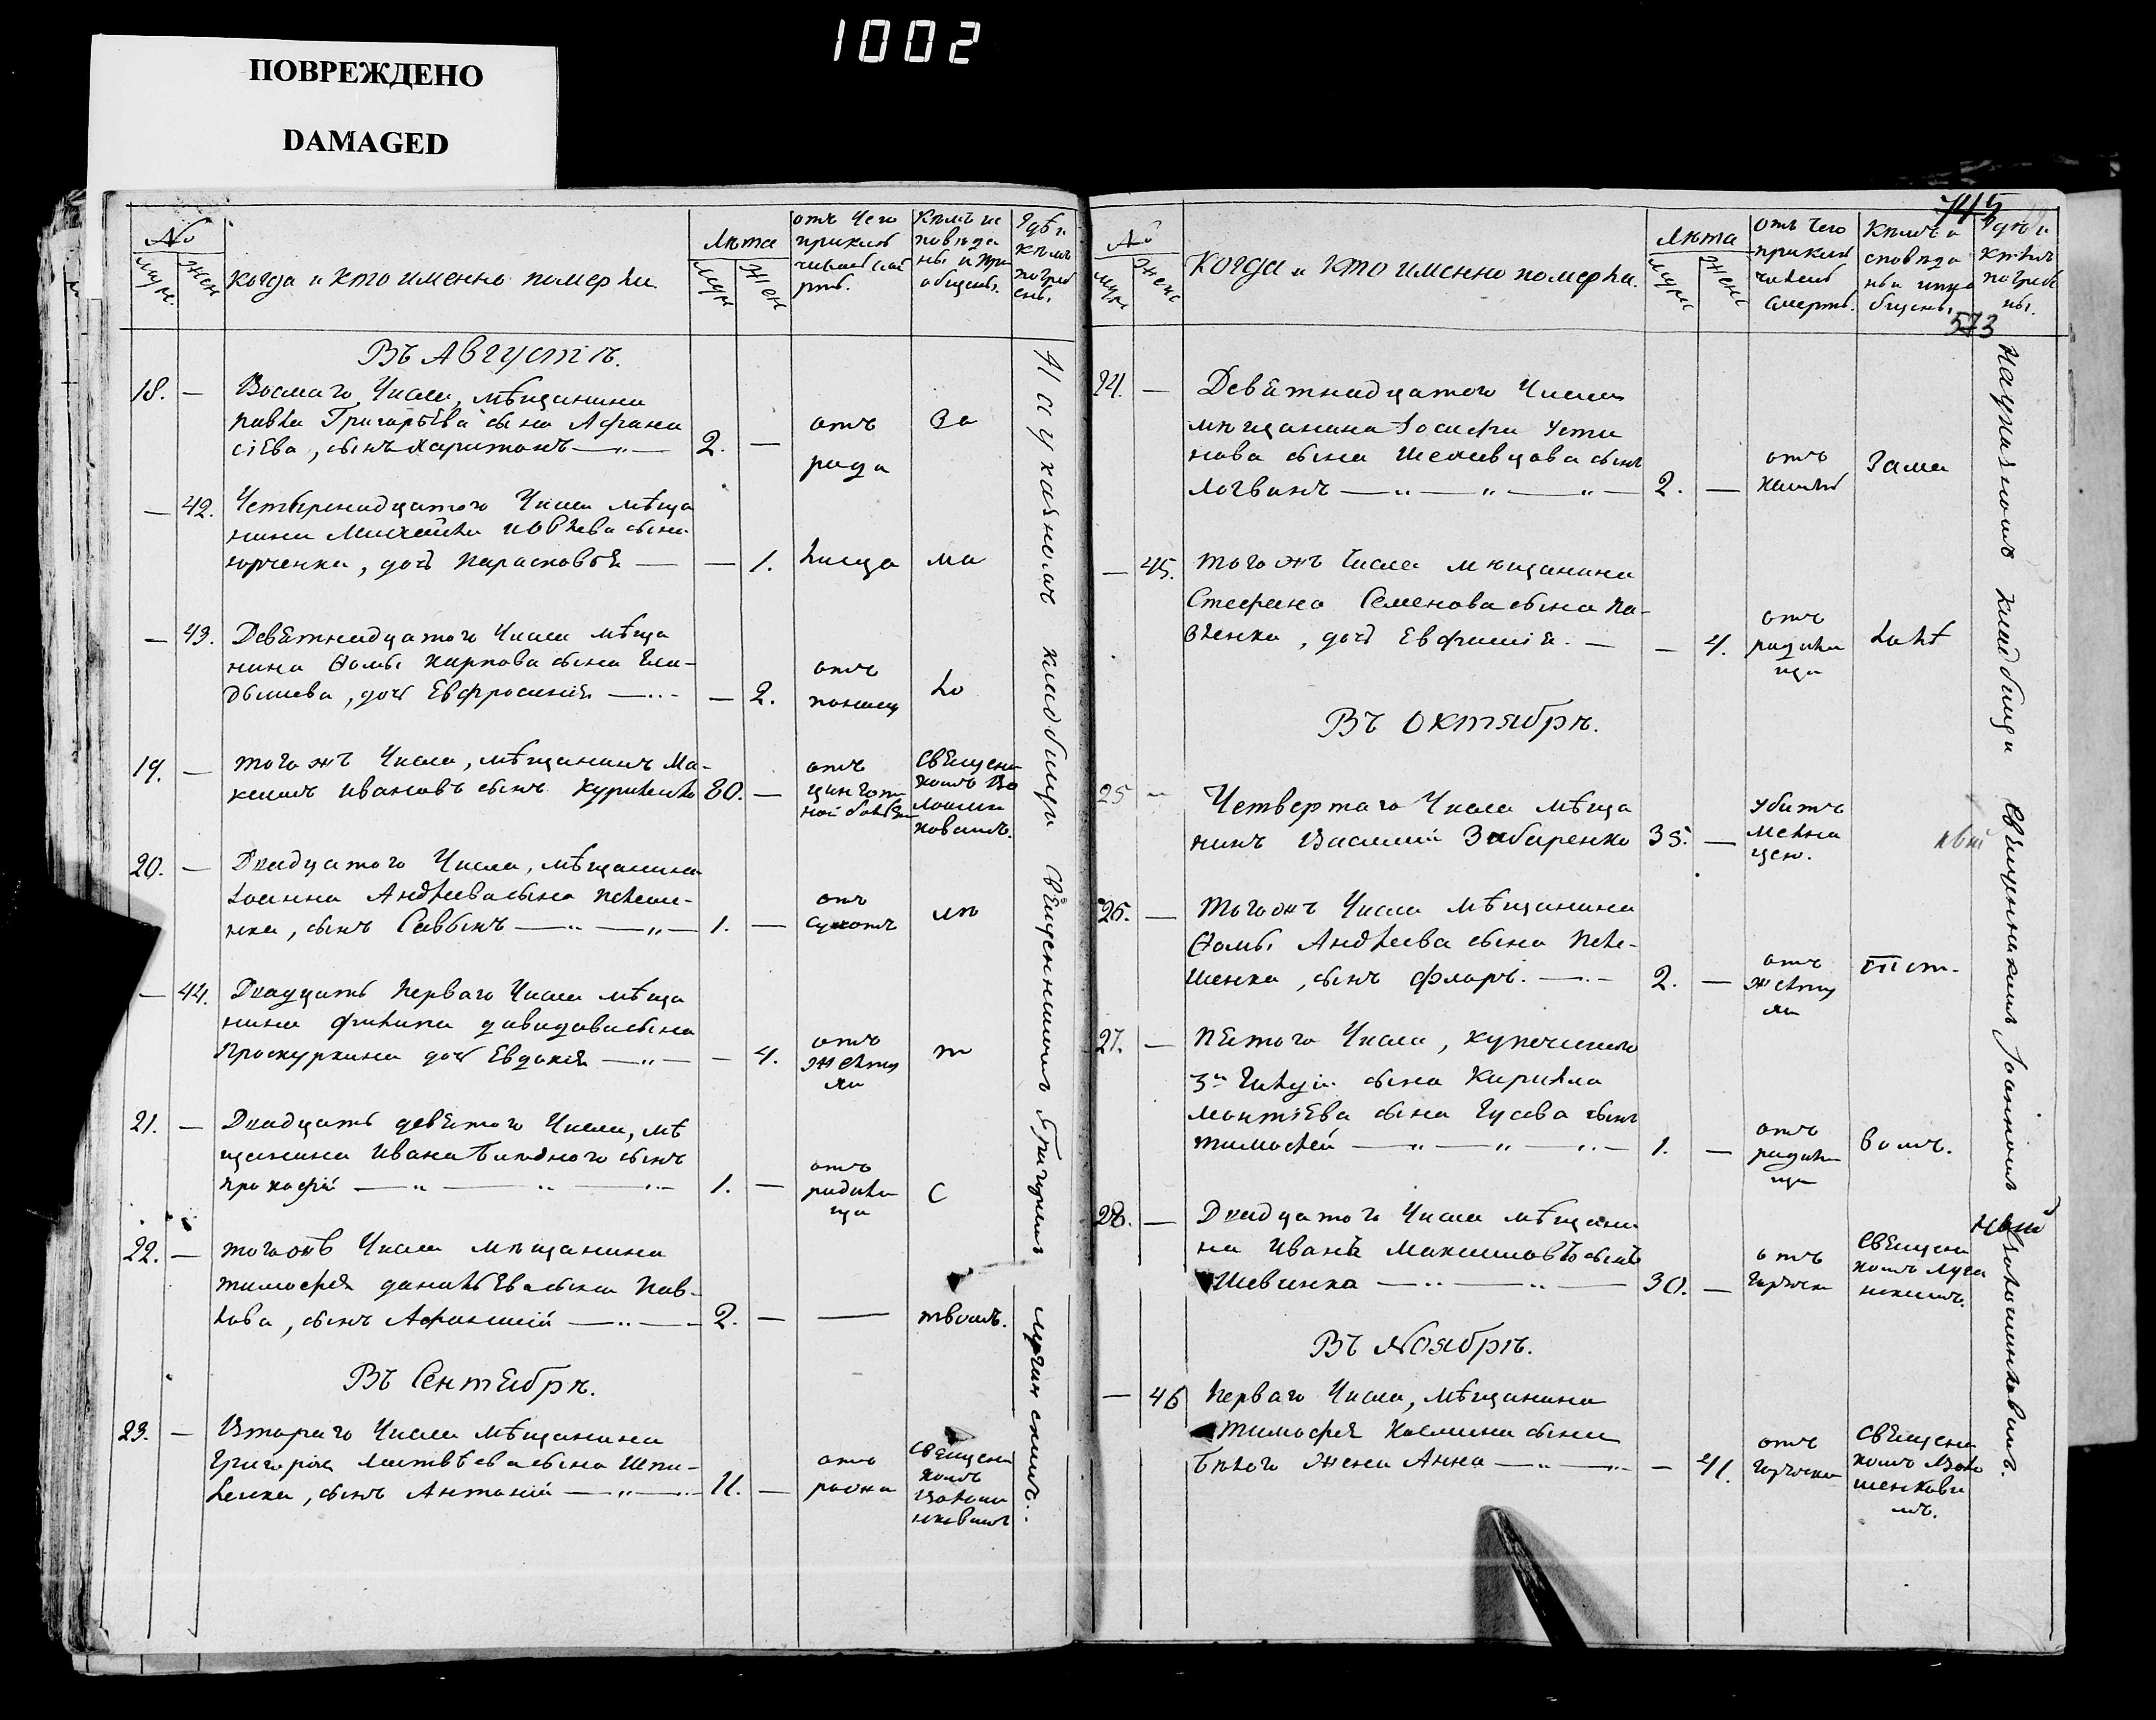 1002
ПОВРЕЖДЕНО
DAMAGED
№
муж.
жен
когда и кто именно померли
лѣта
муж
жен
отъ чего
приклю
чилась
Кѣмъ ис
повѣда
ны и прі
общены.
Гдѣ и
кѣмъ
погреб
ены.
Въ Августѣ.
18. —
Восмаго Числа, мѣщанина
Павла Григорьева сына Афана
сіева, сынъ Харитонъ — „ —
2. —
отъ
рода
За
— 42.
Четырнадцатого Числа мѣща
нина
сына
Юрченка, дочь Парасковья —
— 1.
ма
— 43.
Девятнадцатого Числа мѣща
нина Ѳомы Карпова сына
дочь Евфросинія — „ -
— 2.
отъ
ло
19. —
того жъ Числа, мѣщанинъ Ма-
ксимъ Ивановъ сынъ
80. —
отъ
цинготн
ной болѣзн
Священн
комъ Во
лошин
ковымъ.
20. —
Двадцатого Числа, мѣщанина
Іоанна Андреева сына Пелеше-
нка, сынъ Саввынъ — „ — „ —
1. —
отъ
сухотъ
лѣ
— 44.
Двадцать перваго Числа мѣща
нина Филипа Давидова сына
Проскуркина дочь Евдокія — „ —
— 4.
отъ
желту
хи
т
21. —
Двадцать девятого Числа, мѣ
щанина Ивана сынъ
Прокофій — „ — „ — „ —
1. —
отъ
родимы
ца
с
22. —
того жъ Числа мѣщанина
Тимофея Данильева сына Пав-
лова, сынъ Афанасій — „ — „ —
2. — —
твомъ.
Въ Сентябрѣ.
23. —
Втораго Числа мѣщанина
Григорія Матвѣева сына Шпи-
ленка, сынъ Антоній — „ — „
11. —
отъ
Священ
комъ
Волоши
нковымъ
На указномъ кладбищѣ Священникомъ Григоріемъ Лучинскимъ.
745
№
муж
женс
Когда и кто именно померли.
лѣта
муж
женс
отъ чего
приклю
чилась
смерть.
Кѣмъ и
сповѣда
ны и прі
общены
Гдѣ и
кѣмъ
погребе
ны.
573
24. —
Девятнадцатого Числа
мѣщанина Іосифа Усти
нова сына Шелевцова сынъ
Логвинъ — „ — „ — „ —
2. —
отъ
кашлю
Зама
— 45.
того жъ Числа мѣщанина
Стефана Семенова сына Па-
вленка, дочь Евфимія. —
— 4.
отъ
родимы
ца
Въ Октябрѣ.
25 —
Четвертаго Числа мѣща
нинъ Василій Забаренко
35. —
Убитъ
мельни
цею.
26. —
Того жъ Числа мѣщанина
Ѳомы Андреева сына Пеле-
шенка, сынъ Флоръ. — „ —
2. —
отъ
желту
хи
27. —
Пятого Числа, купеческого
3й Гильдіи сына Кирила
Монтіева сына Гусева сынъ
Тимофей — „ — „ — „ —
1. —
отъ
родими
ца
вомъ.
28. —
Двадцатого Числа мѣщани
на Иванъ Максимовъ сынъ
Шевченка — „ — „ —
30. —
отъ
горячки
Священ
комъ Луча
нскимъ.
Въ Ноябрѣ.
— 46
Перваго Числа, мѣщанина
Тимофея Космина сына
Бѣлого жена Анна — „ — „ —
— 41.
отъ
горячки
Священ
комъ Воло
шенковы
мъ.
На указномъ кладбищѣ Священникомъ Іоанномъ Волошинковымъ.